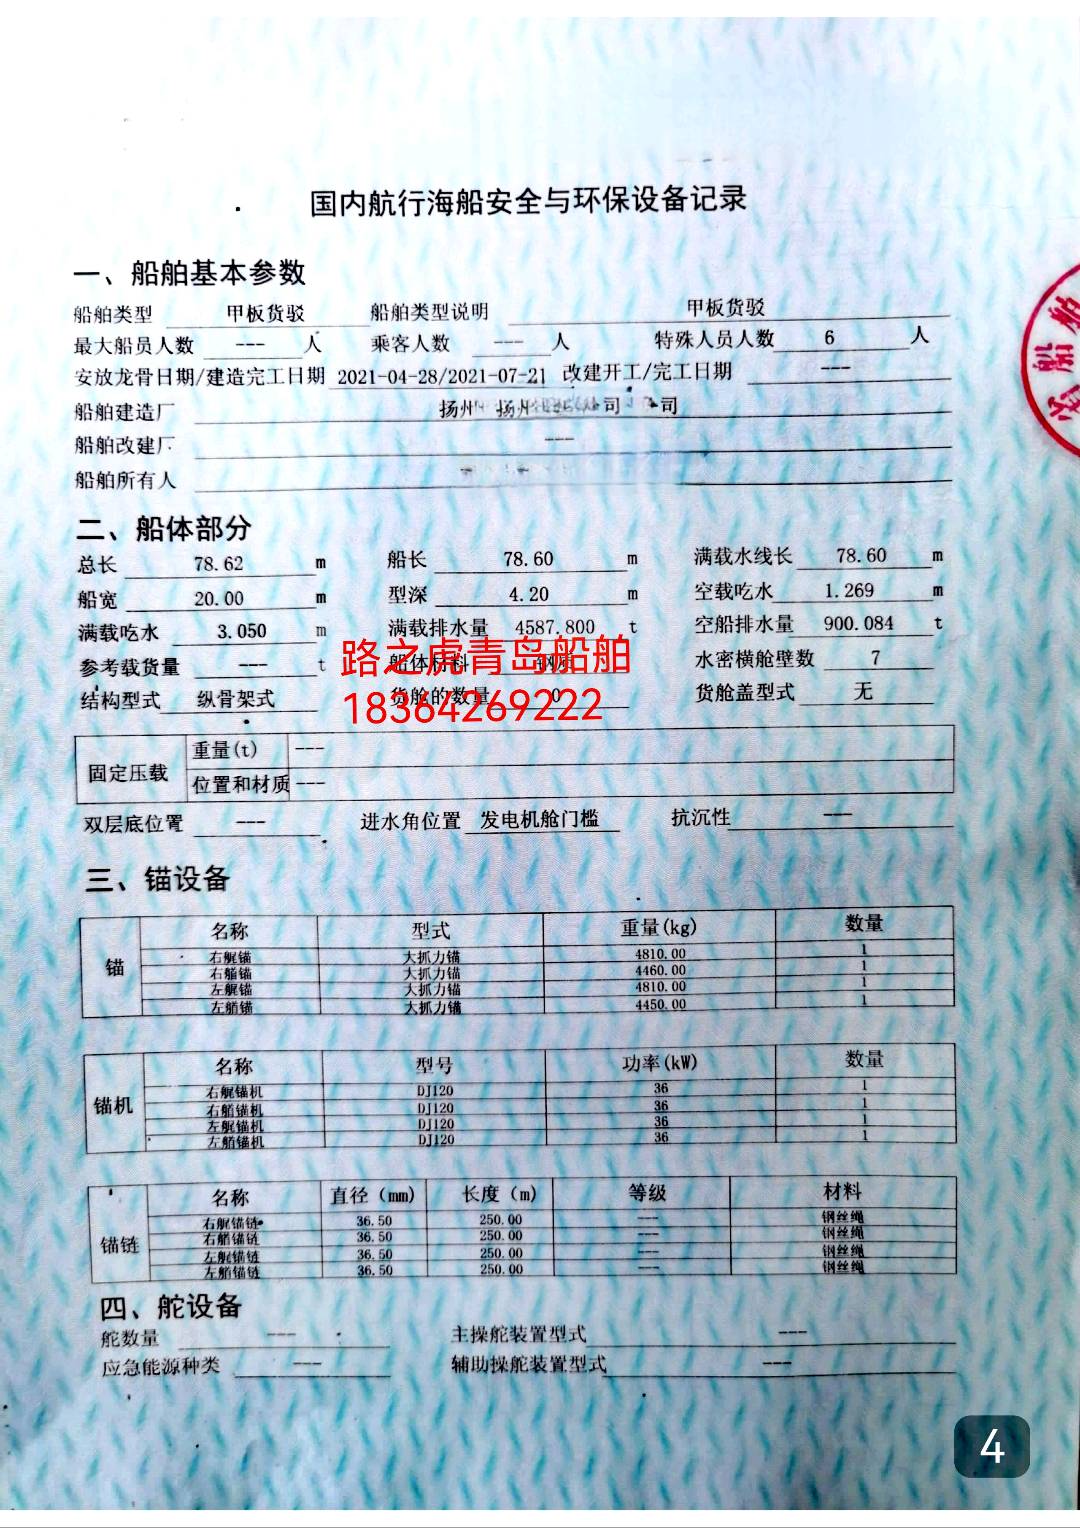 国内航行海船安全与环保设备记录
一、船舶基本参数
船舶类型 甲板货驳 船舶类型说明 甲板货驳
最大船员人数 --- 人 乘客人数 --- 人 特殊人员人数 6 人
安放龙骨日期/建造完工日期 2021-04-28/2021-07-21 改建开工/完工日期 ---
船舶建造厂 扬州 扬州 司 司
船舶改建厂 ---
船舶所有人
二、船体部分
总长 78.62 m 船长 78.60 m 满载水线长 78.60 m
船宽 20.00 m 型深 4.20 m 空载吃水 1.269 m
满载吃水 3.050 m 满载排水量 4587.800 t 空船排水量 900.084 t
参考载货量 --- t 船体材料 钢质 水密横舱壁数 7
路之虎青岛船舶
结构型式 纵骨架式 货舱的数量 0 货舱盖型式 无
18364269222
固定压载 重量(t) ---
位置和材质 ---
双层底位置 --- 进水角位置 发电机舱门槛 抗沉性 ---
三、锚设备
锚 名称 型式 重量(kg) 数量
右艉锚 大抓力锚 4810.00 1
右艏锚 大抓力锚 4460.00 1
左艉锚 大抓力锚 4810.00 1
左艏锚 大抓力锚 4450.00 1
锚机 名称 型号 功率(kW) 数量
右艉锚机 DJ120 36 1
右艏锚机 DJ120 36 1
左艉锚机 DJ120 36 1
左艏锚机 DJ120 36 1
锚链 名称 直径(mm) 长度(m) 等级 材料
右艉锚链 36.50 250.00 --- 钢丝绳
右艏锚链 36.50 250.00 --- 钢丝绳
左艉锚链 36.50 250.00 --- 钢丝绳
左艏锚链 36.50 250.00 --- 钢丝绳
四、舵设备
舵数量 --- 主操舵装置型式 ---
应急能源种类 --- 辅助操舵装置型式 ---
船舶
4